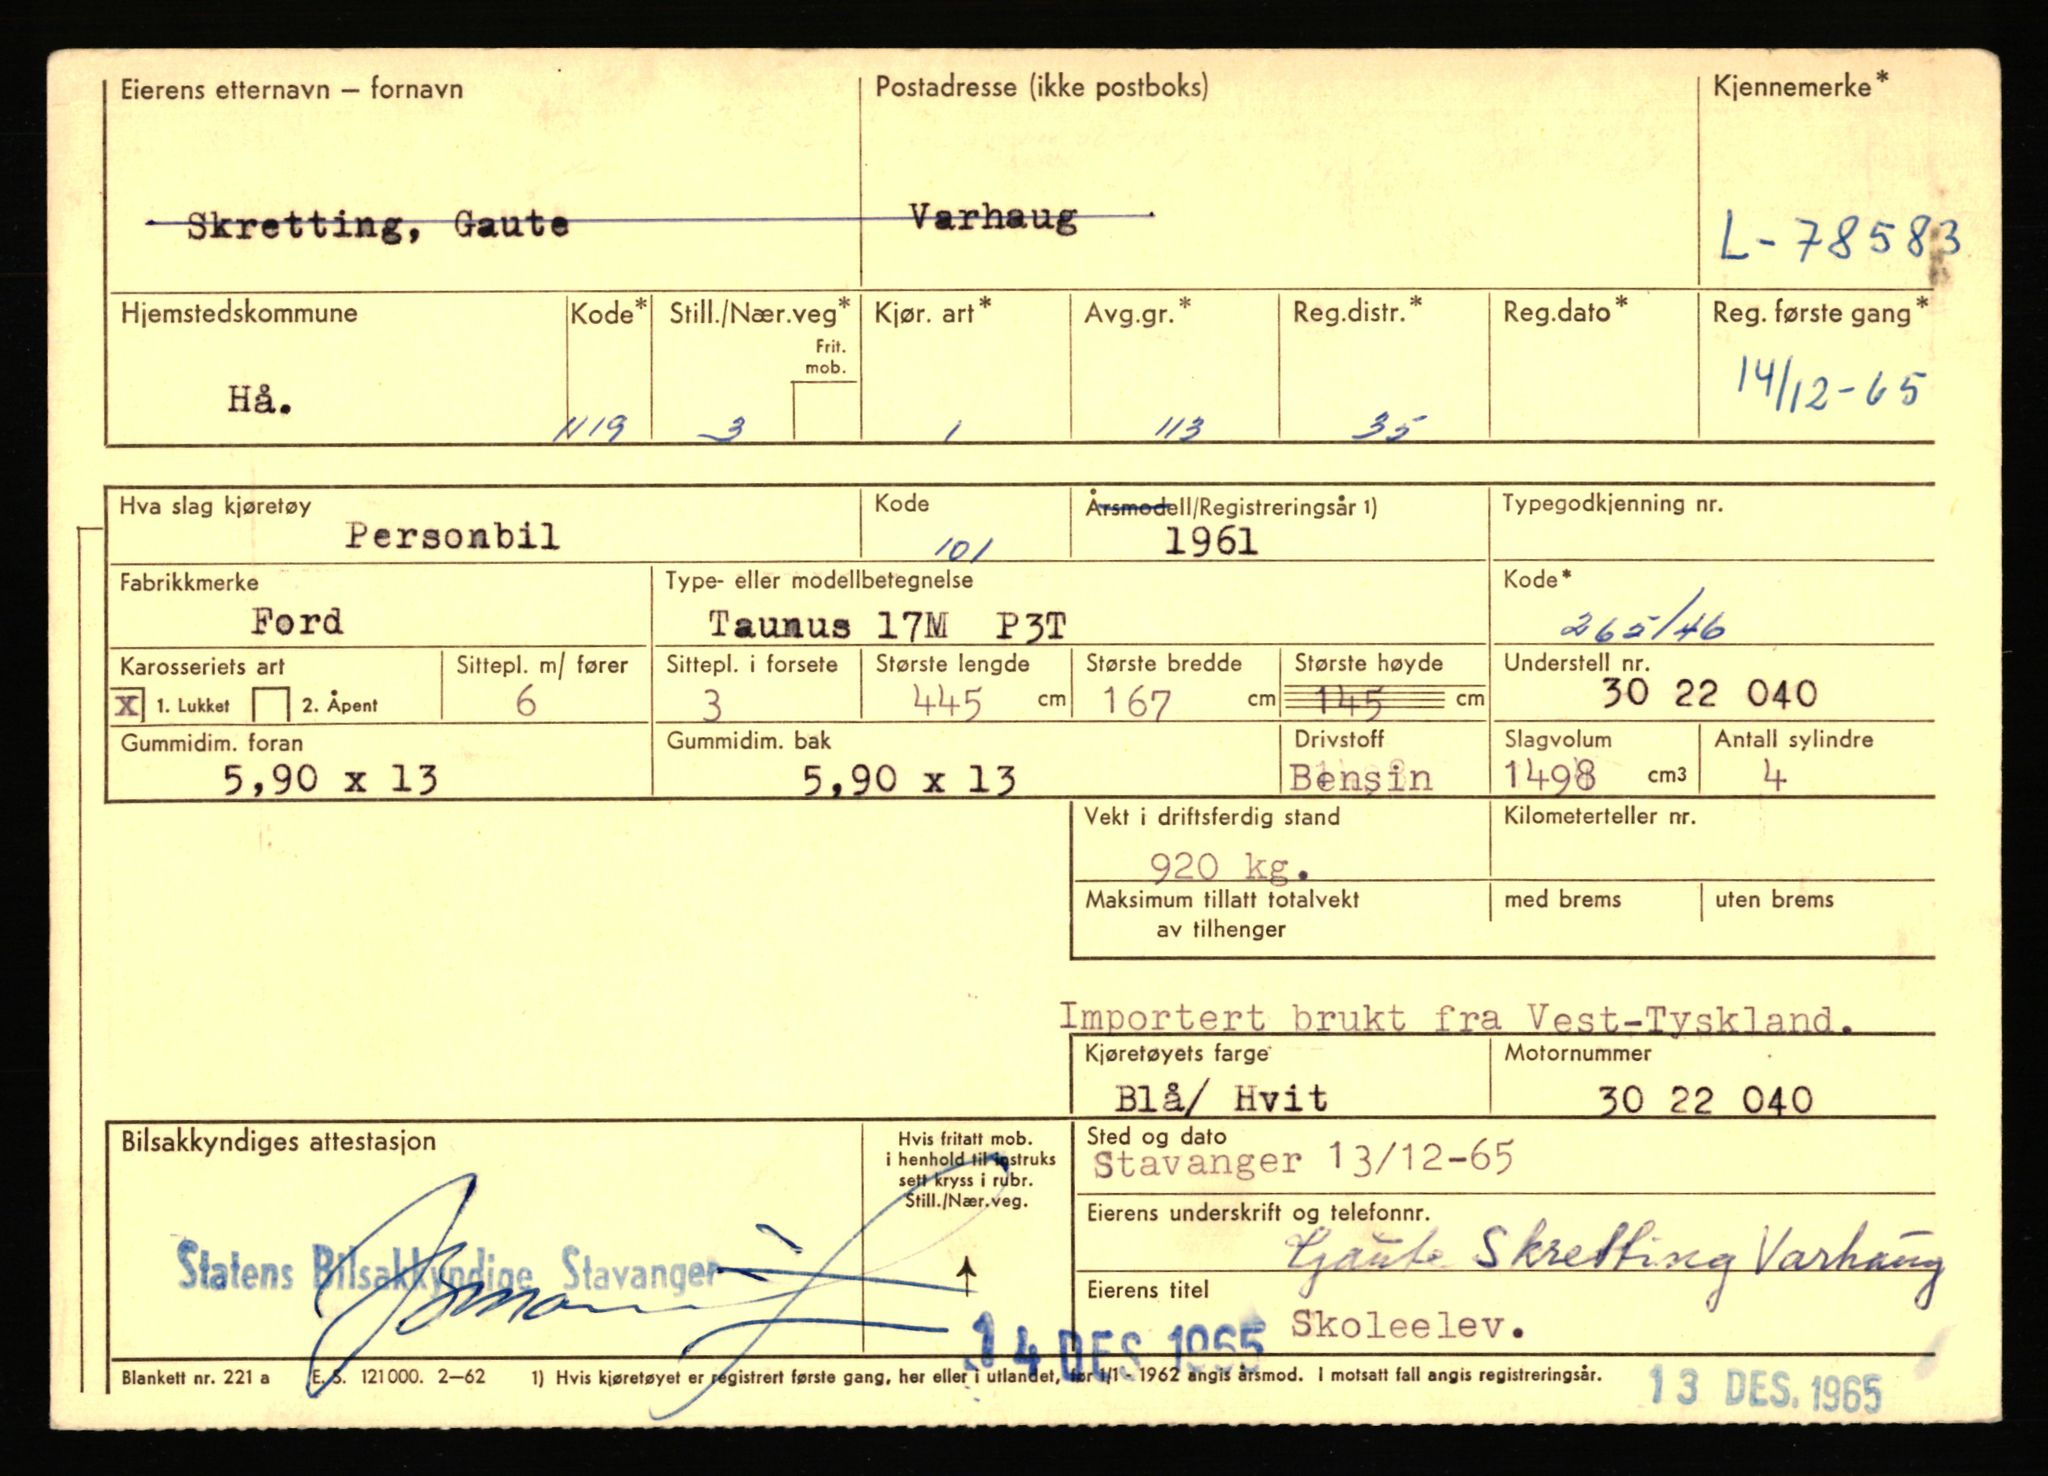 Eierens etternavn – fornavn Postadresse (ikke postboks) Kjennemerke*
Skretting, Gaute Varhaug L-78583
Hjemstedskommune Kode* Still./Nær.veg* Kjør. art* Avg.gr.* Reg.distr.* Reg.dato* Reg. første gang*
Frit.
mob.
Hå. 1119 3 1 113 35 14/12-65
Hva slag kjøretøy Kode Årsmodell/Registreringsår 1) Typegodkjenning nr.
Personbil 101 1961
Fabrikkmerke Type- eller modellbetegnelse Kode*
Ford Taunus 17M P3T 265/46
Karosseriets art Sittepl. m/ fører Sittepl. i forsete Største lengde Største bredde Største høyde Understell nr.
X 1. Lukket 2. Åpent 6 3 445 cm 167 cm 145 cm 30 22 040
Gummidim. foran Gummidim. bak Drivstoff Slagvolum Antall sylindre
5,90 x 13 5,90 x 13 Bensin 1498 cm3 4
Vekt i driftsferdig stand Kilometerteller nr.
920 kg.
Maksimum tillatt totalvekt med brems uten brems
av tilhenger
Importert brukt fra Vest-Tyskland.
Kjøretøyets farge Motornummer
Blå/ Hvit 30 22 040
Bilsakkyndiges attestasjon Hvis fritatt mob. Sted og dato
i henhold til instruks
sett kryss i rubr.
Still./Nær.veg.
Stavanger 13/12-65
Eierens underskrift og telefonnr.
Gaute Skretting Varhaug
Statens Bilsakkyndige Stavanger
Eierens titel
Skoleelev.
14 DES. 1965
Blankett nr. 221 a E. S. 121000. 2–62 1) Hvis kjøretøyet er registrert første gang, her eller i utlandet, før 1/1 - 1962 angis årsmod. I motsatt fall angis registreringsår.
13 DES. 1965